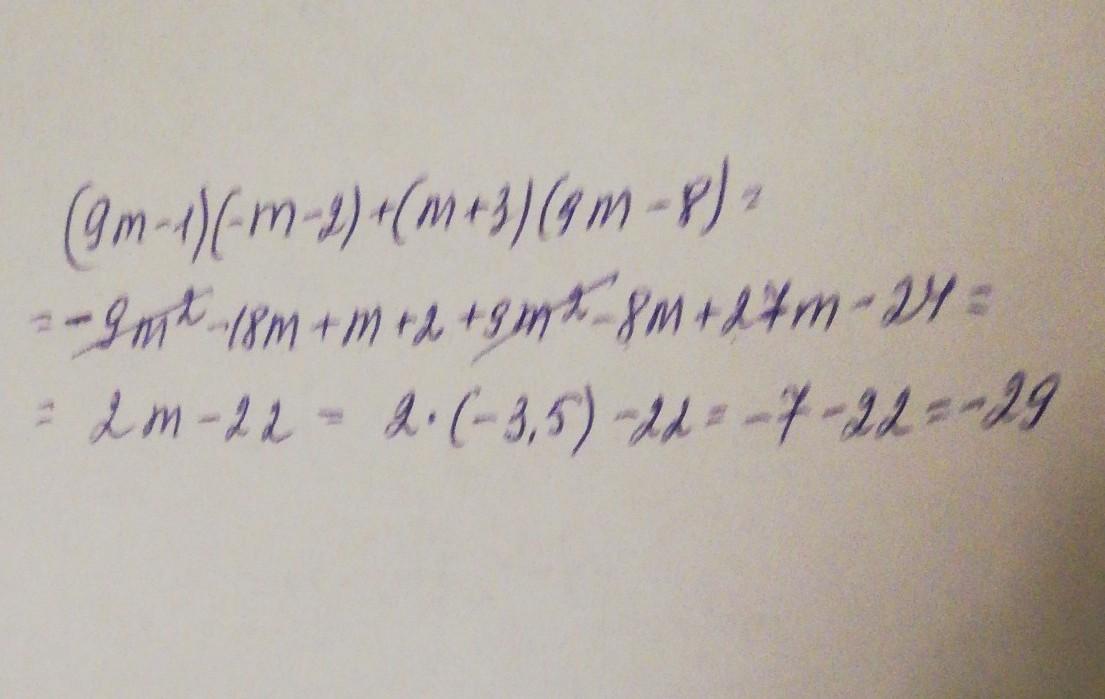 (9m-1)(-m-2)+(m+3)(9m-8)=
=-9m²-18m+m+2+9m²-8m+27m-24=
= 2m-22 = 2·(-3,5)-22=-7-22=-29